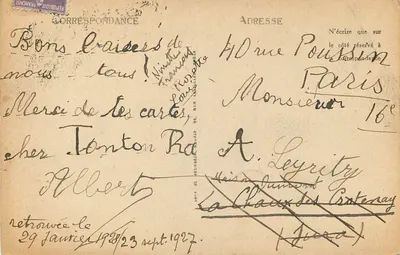 CORRESPONDANCE
Bons baisers de
nous tous!
Merci de tes cartes,
cher Tonton Ra
Albert
retrouvée le
29 janvier 1928/23 sept. 1927.
ADRESSE
N'écrire que sur
le côté réservé à
40 rue Poussin
Paris
16e
Monsieur
A. Leyritz
Maison
La Chaux des Crotenay
(Jura)